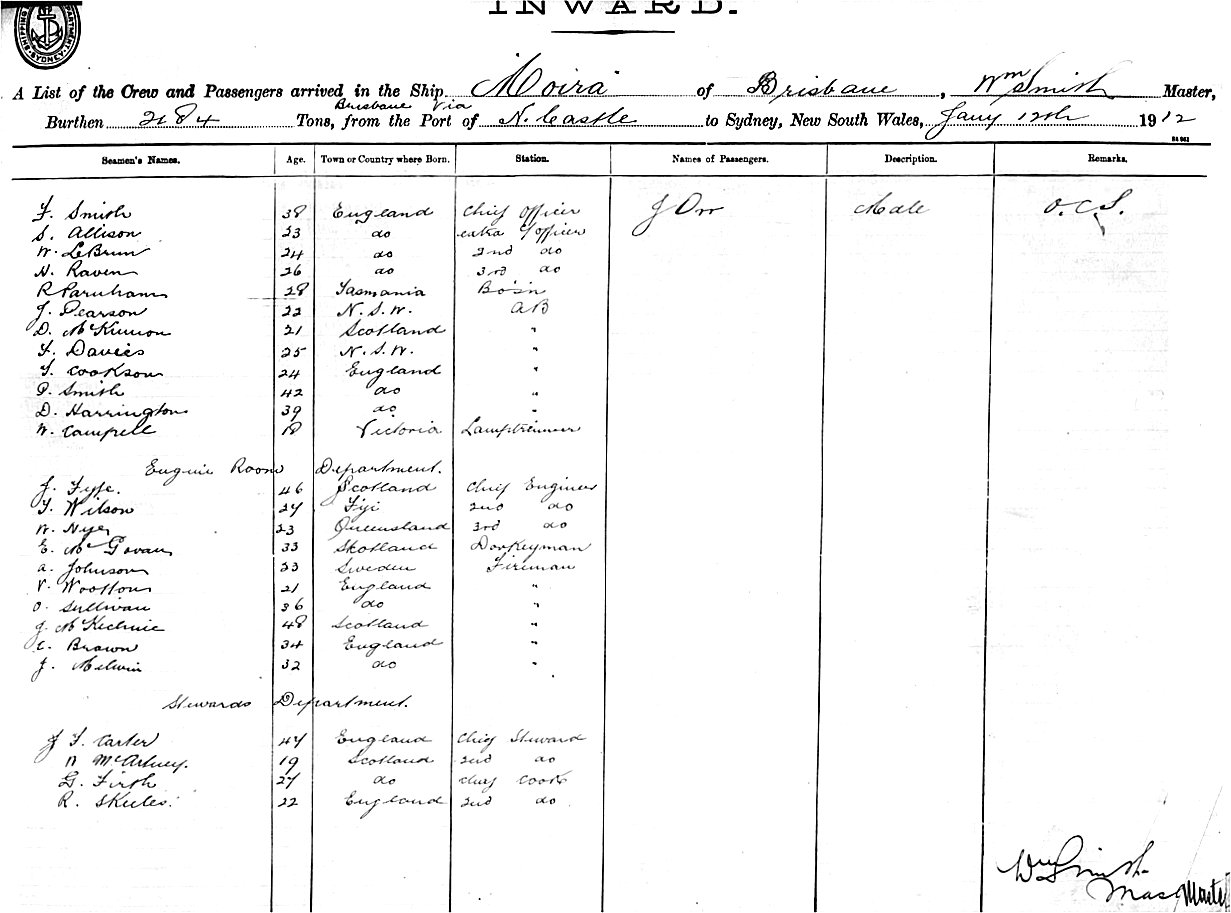 INWARD.
SHIPPING DEPARTMENT. SYDNEY
A List of the Crew and Passengers arrived in the Ship Moira of Brisbane, Wm Smith Master,
Brisbane Via
Burthen 2184 Tons, from the Port of N. Castle to Sydney, New South Wales, Jany 12th 1912
Seamen's Names. Age. Town or Country where Born. Station. Names of Passengers. Description. Remarks.
F. Smith 38 England Chief Officer J Orr Male O.C.S.
S. Allison 23 do extra Officer
W. LeBrun 24 do 2nd do
N. Raven 26 do 3rd do
R Parnham 28 Tasmania Bo'sn
J. Pearson 22 N.S.W. AB
D. McKinnon 21 Scotland "
F. Davies 25 N.S.W. "
T. Cookson 24 England "
P. Smith 42 do "
D. Harrington 39 do "
W. Campbell 18 Victoria Lamptrimmer
Engine Room Department.
J. Fyfe. 46 Scotland Chief Engineer
T. Wilson 27 Fiji 2nd do
W. Nye 23 Queensland 3rd do
E. McGovan 33 Skotland Donkeyman
A. Johnson 33 Sweden Fireman
V. Wootton 21 England "
O. Sullivan 36 do "
J. McKechnie 48 Scotland "
C. Brown 34 England "
J. Melvin 32 do "
Stewards Department.
J T. Carter 47 England Chief Steward
D McArtney. 19 Scotland 2nd do
G. Firth 27 do chief cook
R. Skeeles. 22 England 2nd do
Wm Smith
Master